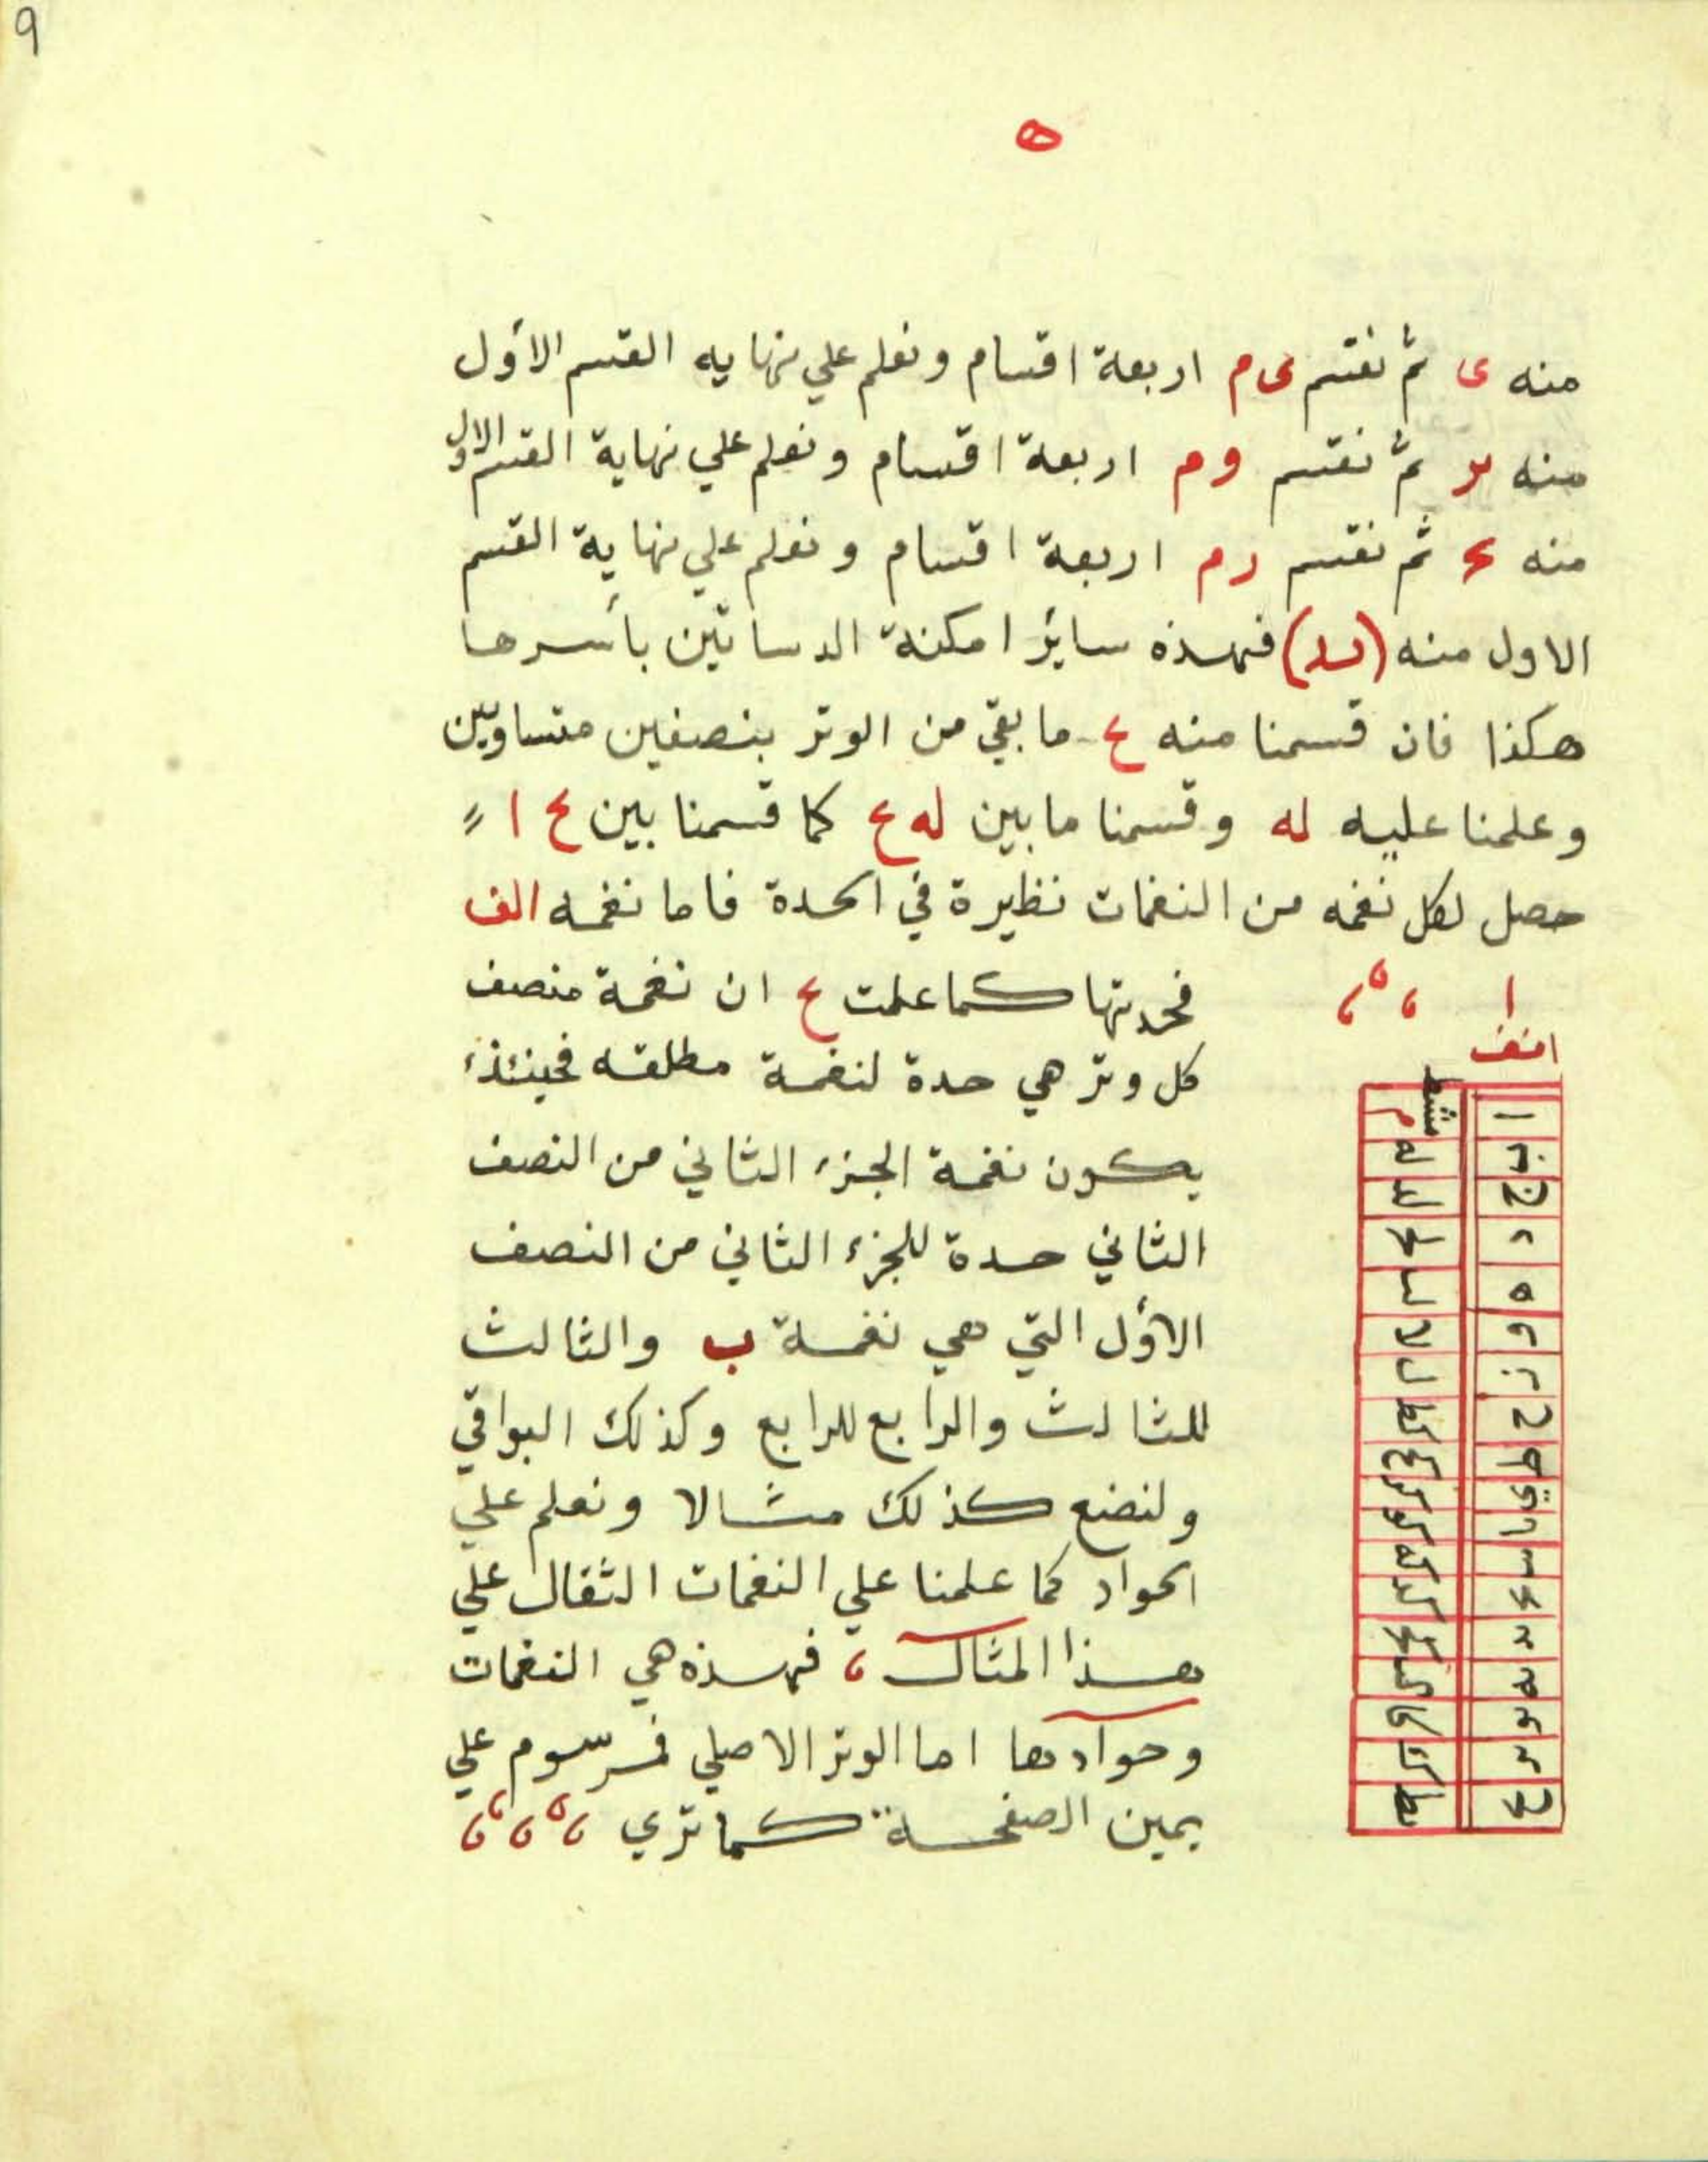 ٩
ه
منه ى ثم نقسم ى م اربعة اقسام ونعلم علي نهايه القسم الأول
منه ير ثم نقسم و م اربعة اقسام ونعلم علي نهاية القسم الاول
منه ثم نقسم ر م اربعة اقسام ونعلم علي نهاية القسم
الاول منه (يد) فهذه سائر امكنة الدساتين بأسرها
هكذا فان قسمنا منه ما بقي من الوتر بنصفين متساويين
وعلمنا عليه له وقسمنا ما بين له كما قسمنا بين ا
حصل لكل نغمه من النغمات نظيرة في الحدة فاما نغمه الف
فحدتها كما علمت ان نغمة منصف
كل وتر هي حدة لنغمة مطلقه فحينئذ
يكون نغمة الجزء الثاني من النصف
الثاني حدة للجزء الثاني من النصف
الأول التي هي نغمة ب والثالث
للثالث والرابع للرابع وكذلك البواقي
ولنضع كذلك مثالا ونعلم علي
الحواد كما علمنا علي النغمات الثقال علي
هذا المثال ، فهذه هي النغمات
وحوادها اما الوتر الاصلي فمرسوم علي
يمين الصفحة كما تري
ا
انف
مشط
ا م
ب له
ج لد
د لح
ه لب
و لا
ز ل
ح كط
ط كح
ي كز
يا كو
يب كه
يج كد
يد كح
يه كب
يو كا
ير ك
يح يط